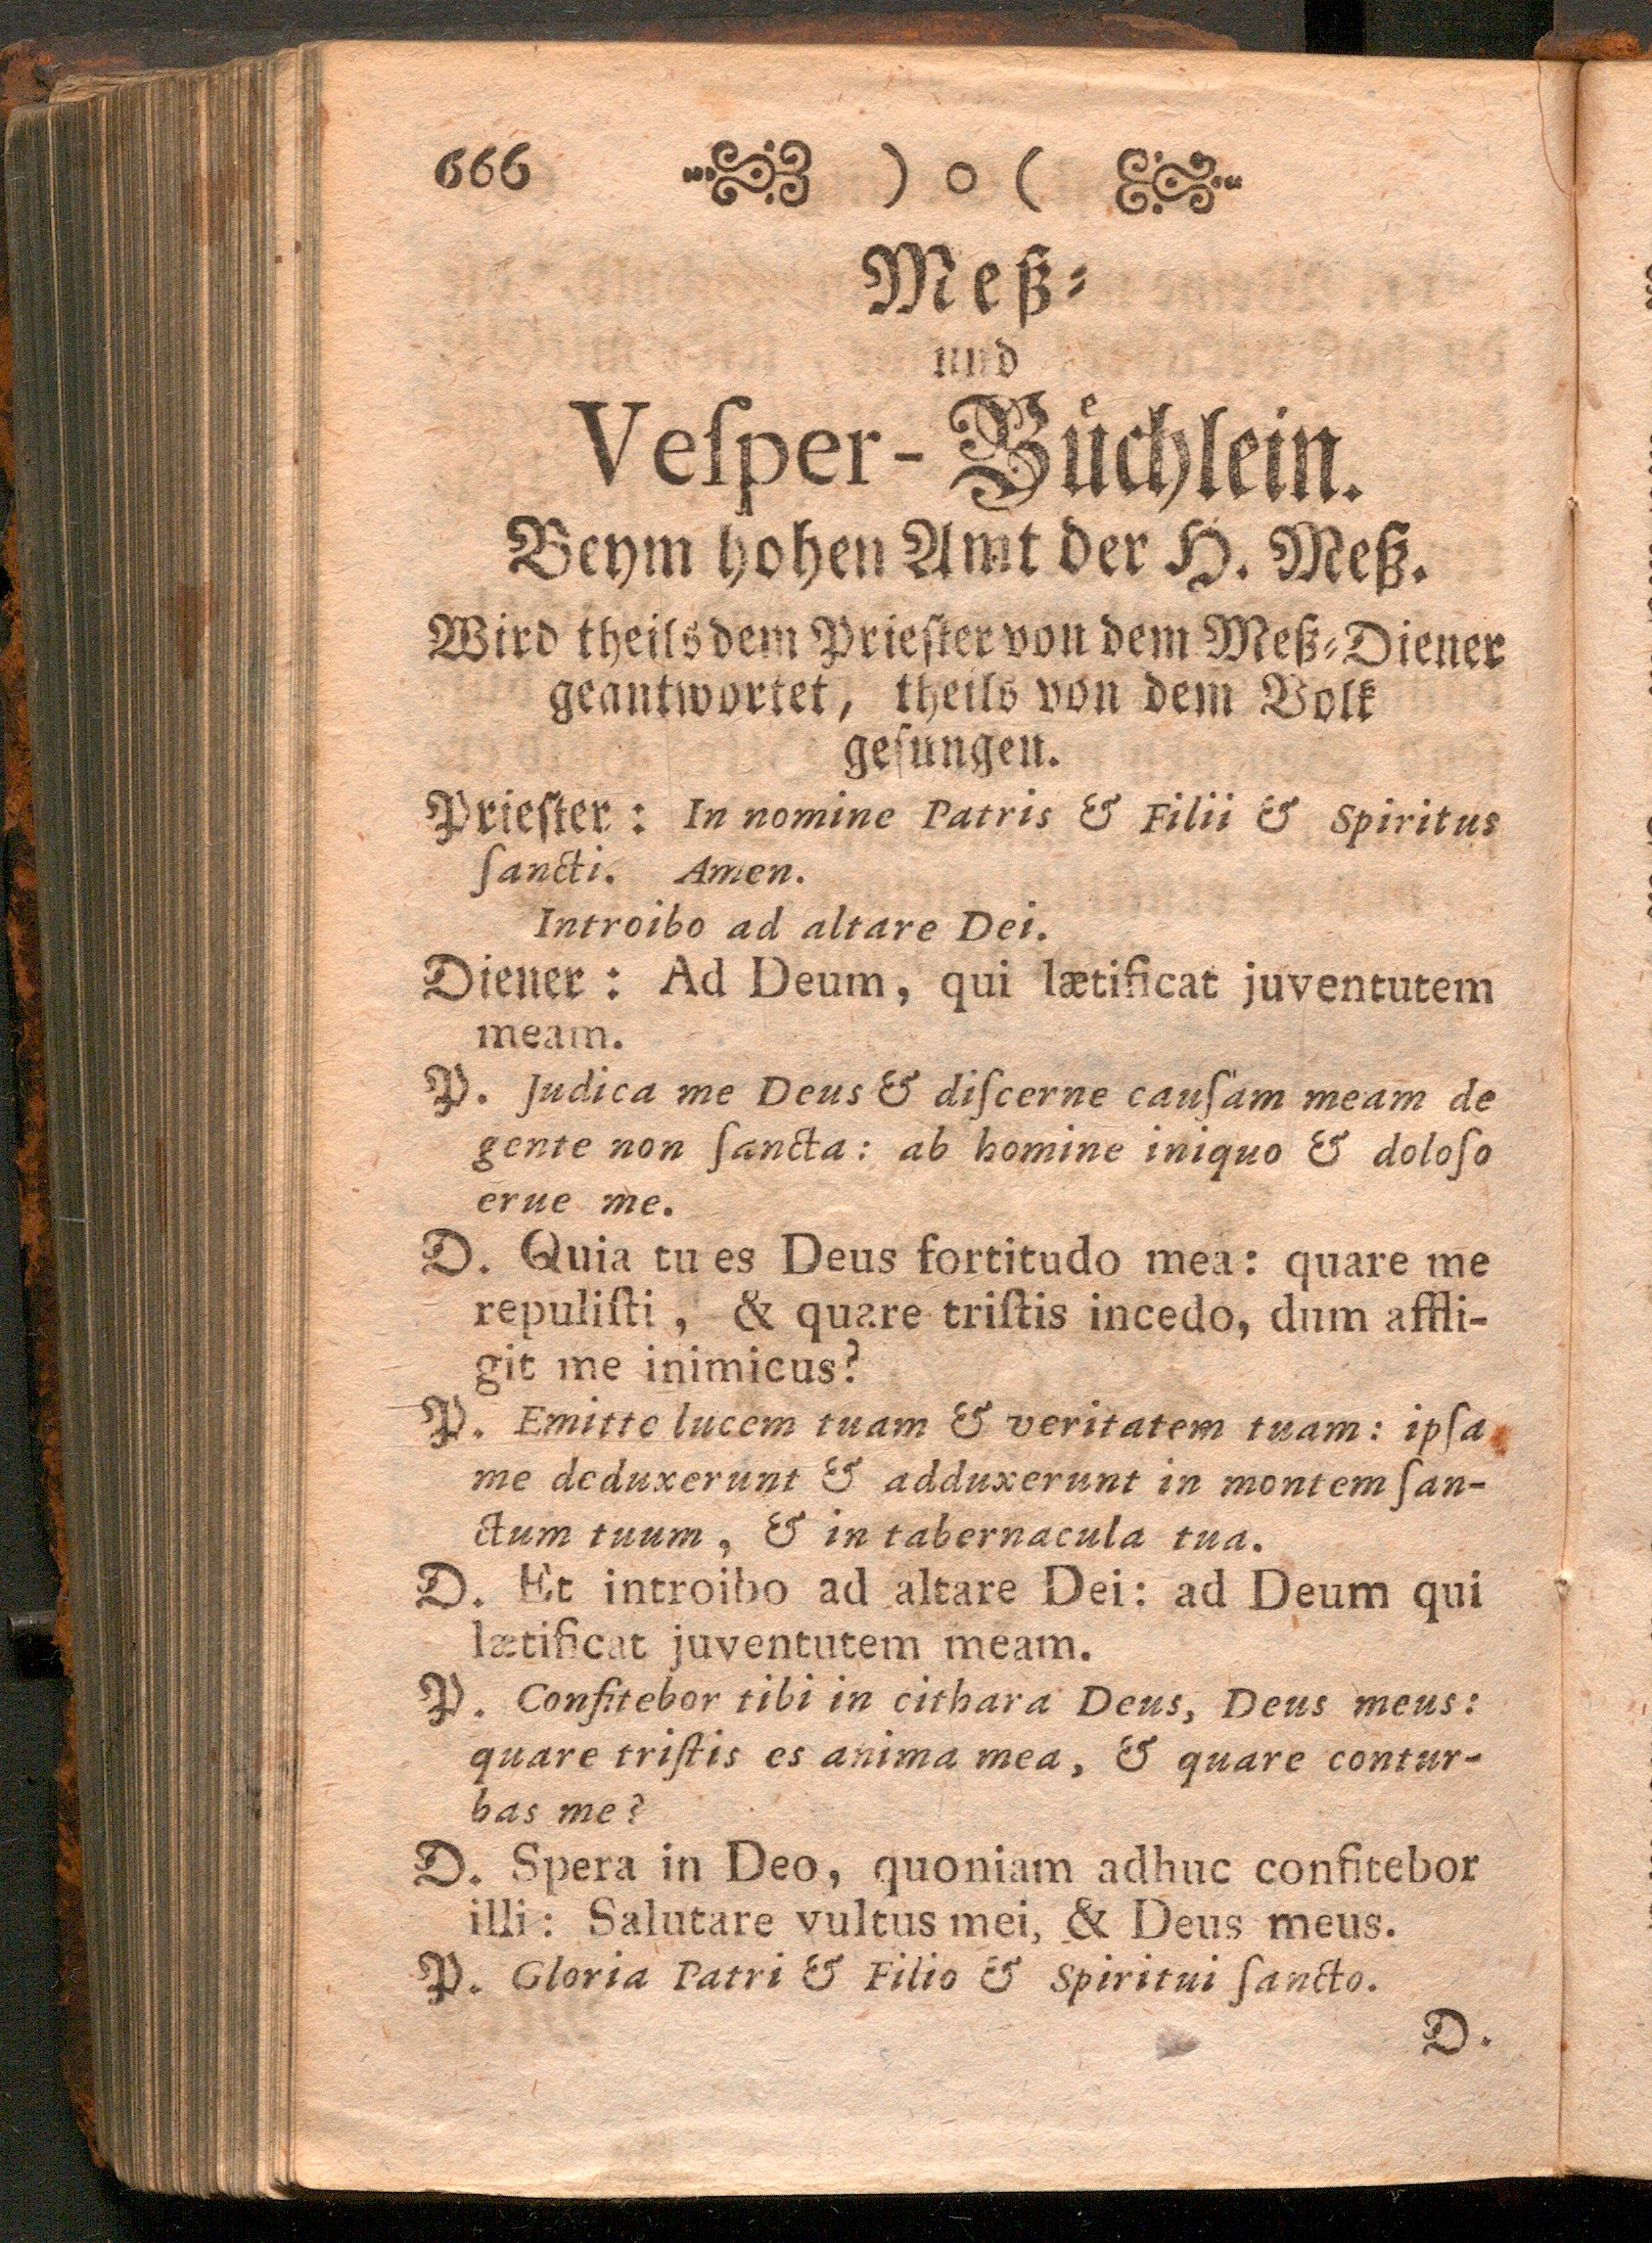 666 ) o (
Meß-
und
Veſper-Buͤchlein.
Beym hohen Amt der H. Meß.
Wird theils dem Prieſter von dem Meß-Diener
geantwortet, theils von dem Volk
geſungen.
Prieſter: In nomine Patris & Filii & Spiritus
ſancti. Amen.
Introibo ad altare Dei.
Diener: Ad Deum, qui lætificat juventutem
meam.
P. Judica me Deus & diſcerne cauſam meam de
gente non ſancta: ab homine iniquo & doloſo
erue me.
D. Quia tu es Deus fortitudo mea: quare me
repuliſti, & quare triſtis incedo, dum affli-
git me inimicus?
P. Emitte lucem tuam & veritatem tuam: ipſa
me deduxerunt & adduxerunt in montem ſan-
ctum tuum, & in tabernacula tua.
D. Et introibo ad altare Dei: ad Deum qui
lætificat juventutem meam.
P. Confitebor tibi in cithara Deus, Deus meus:
quare triſtis es anima mea, & quare contur-
bas me?
D. Spera in Deo, quoniam adhuc confitebor
illi: Salutare vultus mei, & Deus meus.
P. Gloria Patri & Filio & Spiritui ſancto.
D.